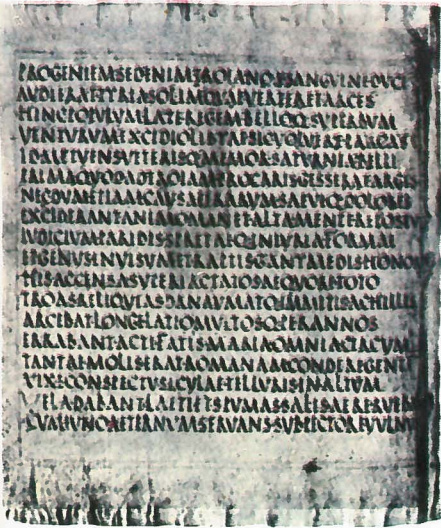 PROGENIEMSEDENIMTROIANOASANGVINEDVCI
AVDIERATTYRIASOLIMQVAEVERTERETARCES
HINCPOPVLVMLATEREGEMBELLOQ·SVPERBVM
VENTVRVMEXCIDIOLIBYAESICVOLVEREPARCAS
IDMETVENSVETERISQ·MEMORSATVRNIABELLI
PRIMAQVODADTROIAMPROCARISGESSERATARGIS
NECDVMETIAMCAVSAEIRARVMSAEVIQ·DOLORES
EXCIDERANTANIMOMANETALTAMENTEREPOSTV
IVDICIVMPARIDISSPRETAEQ·INIVRIAFORMAE
ETGENVSINVISVMETRAPTISGANYMEDISHONOR
HISACCENSASVPERIACTATOSAEQVORETOTO
TROASRELIQVIASDANAVMATQ·IMMITISACHILLIS
ARCEBATLONGELATIOMVLTOSQ·PERANNOS
ERRABANTACTIFATISMARIAOMNIACIRCVM
TANTAEMOLISERATROMANAMCONDEREGENTE
VIXECONSPECTVSICVLAETELLVRISINALTVM
VELADABANTLAETIETSPVMASSALISAERERVEB
CVMIVNOAETERNVMSERVANSSVBPECTOREVVLNV